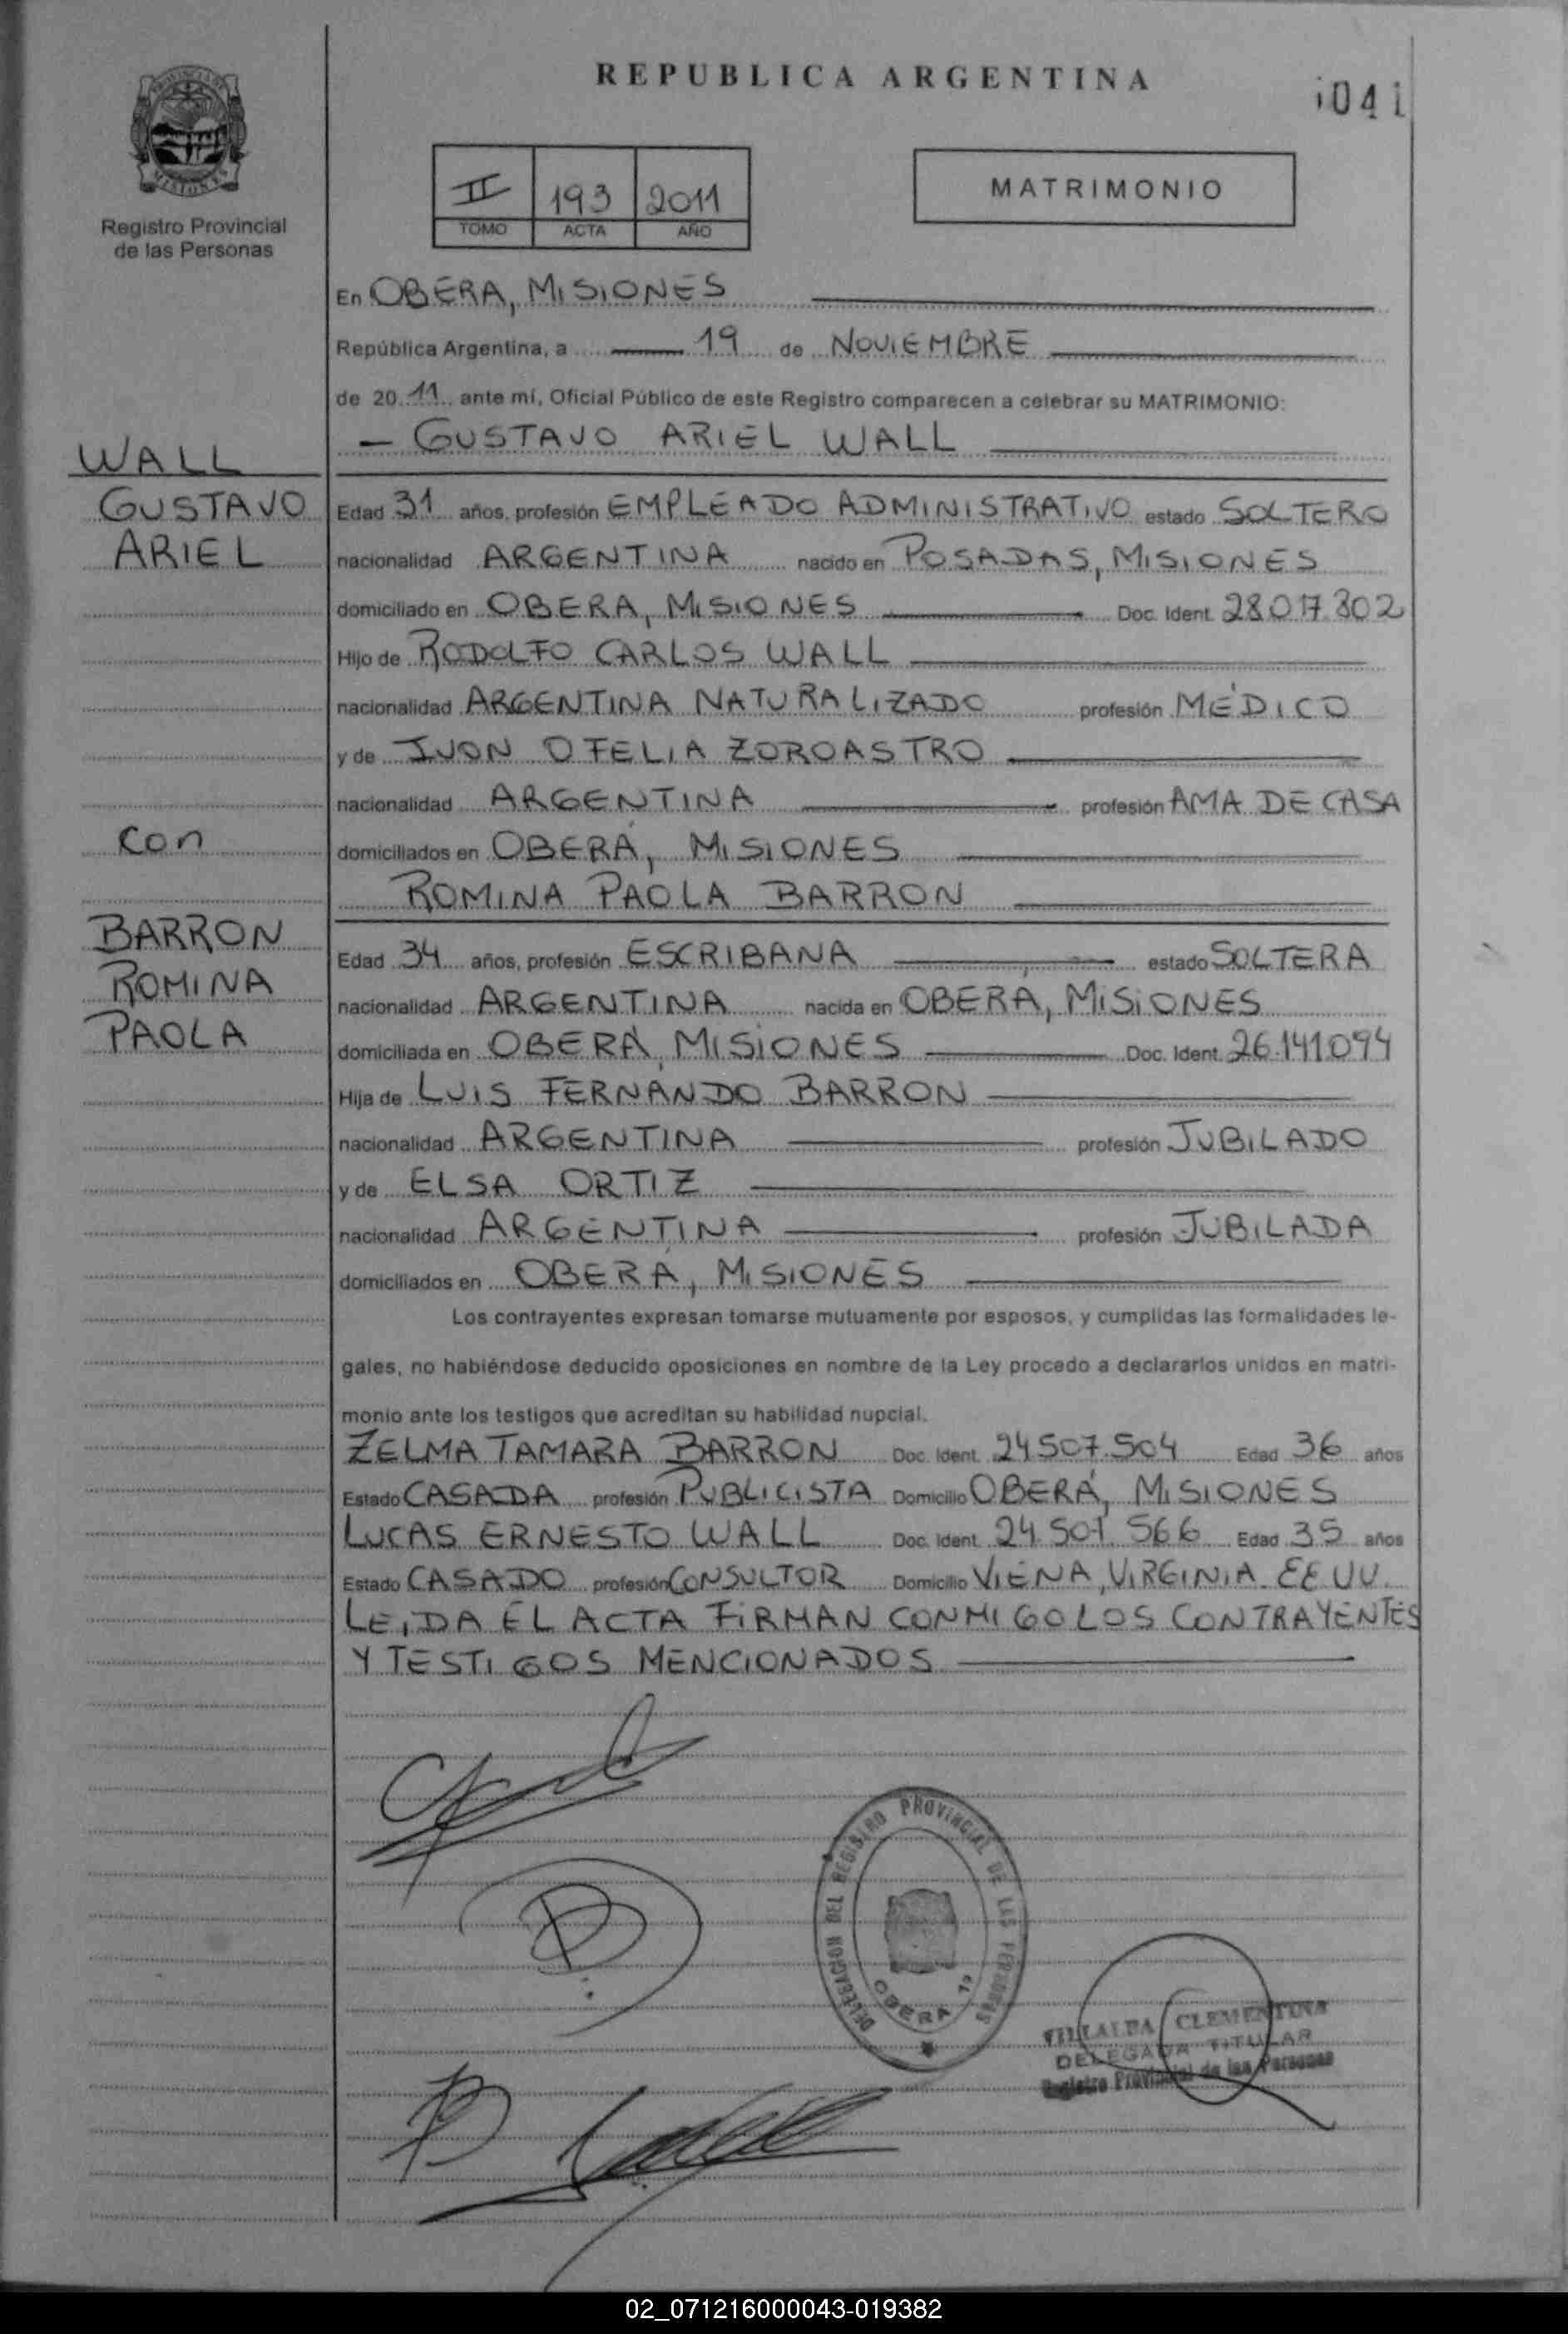 REPUBLICA ARGENTINA
1041
PROVINCIA DE
MISIONES
Registro Provincial
de las Personas
II 193 2011
TOMO ACTA AÑO
MATRIMONIO
En OBERA, MISIONES
República Argentina, a 19 de NOVIEMBRE
de 20 11 ante mí, Oficial Público de este Registro comparecen a celebrar su MATRIMONIO:
GUSTAVO ARIEL WALL
WALL
GUSTAVO
ARIEL
Edad 31 años, profesión EMPLEADO ADMINISTRATIVO estado SOLTERO
nacionalidad ARGENTINA nacido en POSADAS, MISIONES
domiciliado en OBERA, MISIONES Doc. Ident. 28.017.802
Hijo de RODOLFO CARLOS WALL
nacionalidad ARGENTINA NATURALIZADO profesión MÉDICO
y de IVON OFELIA ZOROASTRO
nacionalidad ARGENTINA profesión AMA DE CASA
domiciliados en OBERÁ, MISIONES
con
ROMINA PAOLA BARRON
BARRON
ROMINA
PAOLA
Edad 34 años, profesión ESCRIBANA estado SOLTERA
nacionalidad ARGENTINA nacida en OBERA, MISIONES
domiciliada en OBERÁ, MISIONES Doc. Ident. 26.141.094
Hija de LUIS FERNANDO BARRON
nacionalidad ARGENTINA profesión JUBILADO
y de ELSA ORTIZ
nacionalidad ARGENTINA profesión JUBILADA
domiciliados en OBERÁ, MISIONES
Los contrayentes expresan tomarse mutuamente por esposos, y cumplidas las formalidades le-
gales, no habiéndose deducido oposiciones en nombre de la Ley procedo a declararlos unidos en matri-
monio ante los testigos que acreditan su habilidad nupcial.
ZELMA TAMARA BARRON Doc. Ident. 24.507.504 Edad 36 años
Estado CASADA profesión PUBLICISTA Domicilio OBERÁ, MISIONES
LUCAS ERNESTO WALL Doc. Ident. 24.501.566 Edad 35 años
Estado CASADO profesión CONSULTOR Domicilio VIENA, VIRGINIA EE UU.
LEIDA EL ACTA FIRMAN CONMIGO LOS CONTRAYENTES
Y TESTIGOS MENCIONADOS
DELEGACION DEL REGISTRO PROVINCIAL DE LAS PERSONAS
OBERA 1ª
VILLALBA CLEMENTINA
DELEGADA TITULAR
Registro Provincial de las Personas
02_071216000043-019382